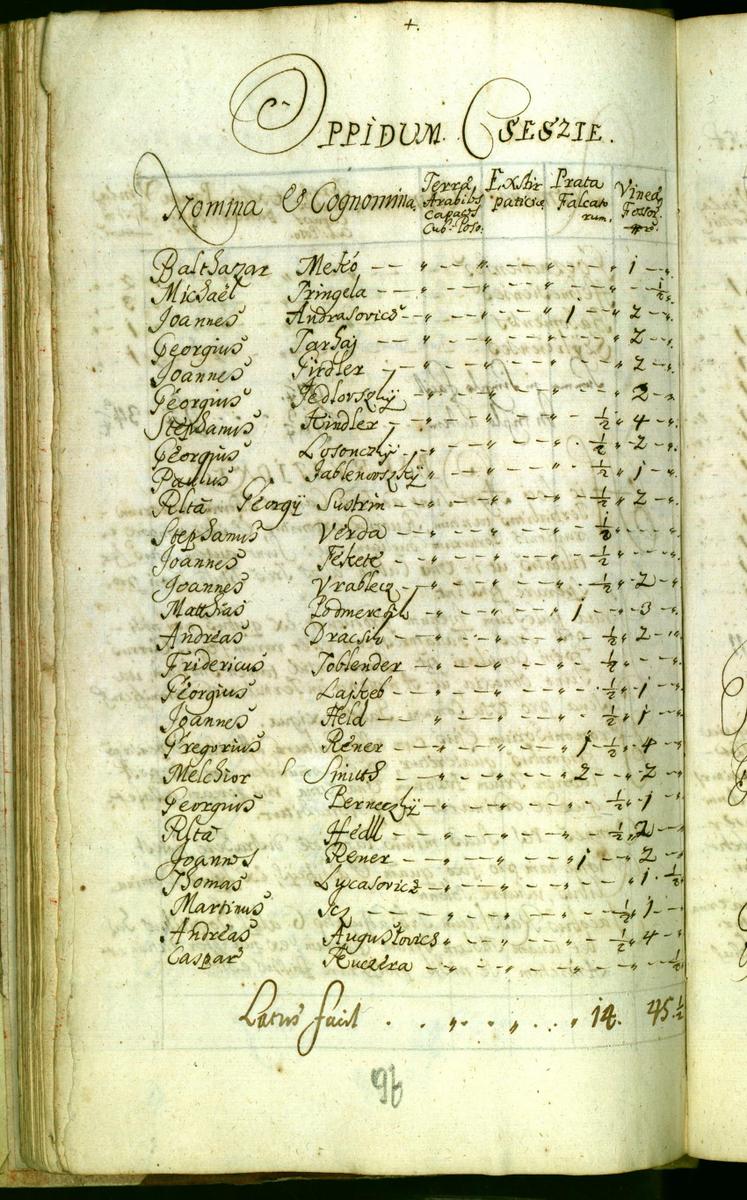 +.
OPPIDUM CSESZIE.
Nomina & Cognomina. Terræ Arabiles Capaces Cub. Poso. Extirpaticiæ Prata Falcatorum. Vineæ Fossor.
Balthazar Mekó — — " — " — — " — — " 1 — "
Michaël Pringela — — " — " — — " — — " — ½
Joannes Andrasovics — " — " — — 1 — " 2 — "
Georgius Tarhaj — — " — " — — " — — " 2 — "
Joannes Girdler — — " — " — — " — — " 2 — "
Georgius Jedlovszky — " — " — — " — — " 2 — "
Stephanus Kindler — — " — " — — " — ½ " 4 — "
Georgius Losonczÿ — " — " — — " — ½ " 2 — "
Paulus Jablenovszkÿ — " — " — — " — ½ " 1 — "
Rlta Georgÿ Sustrin — — " — " — — " — ½ " 2 — "
Stephanus Verda — — " — " — — " — ½ " — — "
Joannes Fekete — — " — " — — " — ½ " — — "
Joannes Vrablecz — " — " — — " — ½ " 2 — "
Matthias Podmerszk — " — " — — 1 — — " 3 — "
Andreas Dracsin — — " — " — — " — ½ " 2 — "
Fridericus Toblender — — " — " — — " — ½ " — — "
Georgius Lajtteb — — " — " — — " — ½ " 1 — "
Joannes Held — — " — " — — " — ½ " 1 — "
Gregorius Rener — — " — " — — 1 — ½ " 4 — "
Melchior Smitth — — " — " — — 2 — — " 2 — "
Georgius Berneczkÿ — " — " — — " — ½ " 1 — "
Rlta Hedl — — " — " — — " — ½ " 2 — "
Joannes Rener — — " — " — — 1 — — " 2 — "
Thomas Lucasovicz — " — " — — " — — " 1 . ½
Martinus Icz — — " — " — — " — ½ " 1 — "
Andreas Augustovics " — " — — " — ½ " 4 — "
Caspar Kuczera — — " — " — — " — — " — ½
Latus facit . . " . . " . . . " 14. 45 ½
96